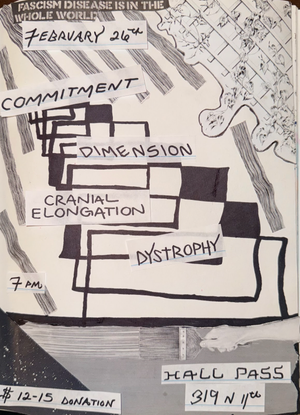 FASCISM DISEASE IS IN THE
WHOLE WORLD
FEBRUARY 26TH
COMMITMENT
DIMENSION
CRANIAL
ELONGATION
DYSTROPHY
7 PM
HALL PASS
$12-15 DONATION
319 N 11TH